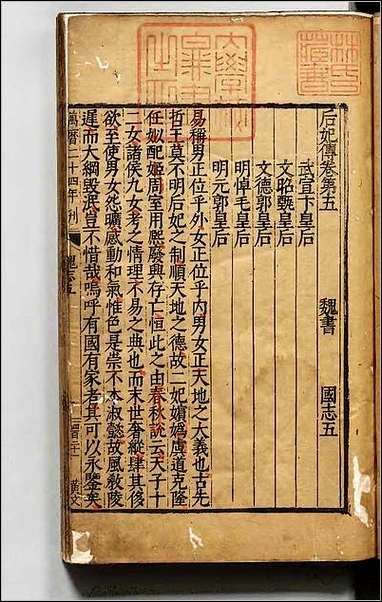 林氏藏書
后妃傳卷第五 魏書 國志五
武宣卞皇后
文昭甄皇后
文德郭皇后
明悼毛皇后
明元郭皇后
易稱男正位乎外女正位乎内男女正天地之大義也古先
哲王莫不明后妃之制順天地之德故二妃嬪嬀虞道克隆
任姒配姬周室用熙廢興存亡恒此之由春秋說云天子十
二女諸侯九女考之情理不易之典也而末世奢縱肆其侈
欲至使男女怨曠感動和氣惟色是崇不本淑懿故風教陵
遲而大綱毀泯豈不惜哉嗚呼有國有家者其可以永鑒矣
萬曆二十四年刊 魏志五 黃文